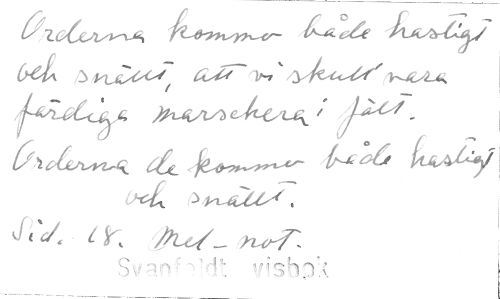 Orderna kommo både hastigt
och snällt, att vi skull' vara
färdiga marschera i fält.
Orderna de kommo både hastigt
och snällt.
Sid. 18. Mel-not.
Svanfeldt visbok